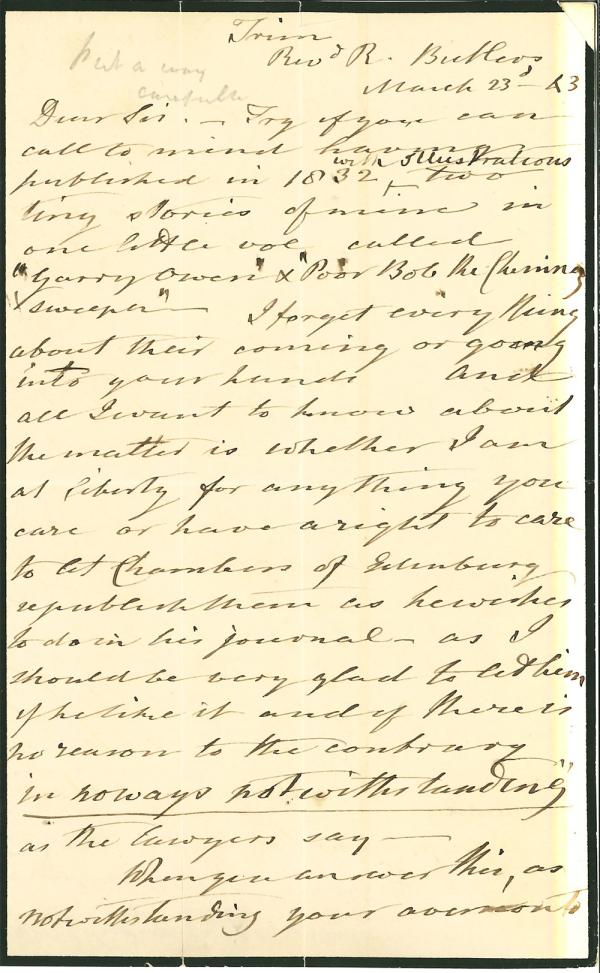 Trim
Revd R. Butlers
March 23d - 43
Put away
carefully
Dear Sir. - Try if you can
call to mind having
with Illustrations
published in 1832 two
tiny stories of mine in
one little vol called
"Garry Owen" & "Poor Bob the Chimney
Sweeper" - I forget every thing
about their coming or going
into your hands and
all I want to know about
the matter is whether I am
at liberty for anything you
care or have a right to care
to let Chambers of Edinburg
republish them as he wishes
to do in his journal - as I
should be very glad to let him
if he like it and if there is
no reason to the contrary
in noways notwithstanding"
as the Lawyers say -
When you answer this, as
notwithstanding your